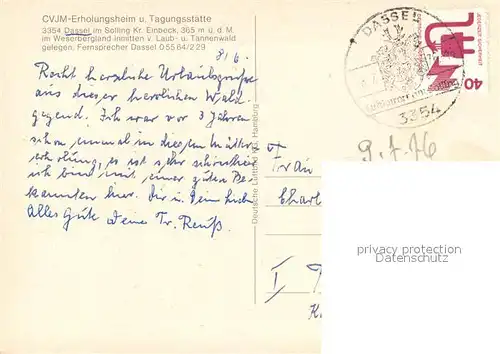 CVJM-Erholungsheim u. Tagungsstätte
3354 Dassel im Solling Kr. Einbeck, 365 m ü. d. M.
im Weserbergland inmitten v. Laub- u. Tannenwald
gelegen. Fernsprecher Dassel 05564/229
8/6.
Recht herzliche Urlaubsgrüße
aus dieser herrlichen Wald
gegend. Ich war vor 3 Jahren
schon einmal in diesem Mütter
erholung, es ist sehr schön hier
ich bin mit einer guten Be
kannten hier. Dir u. Deine
alles Gute Deine Fr. Reuß.
Deutsche Luftbild Hamburg
DASSEL
3354
JEDERZEIT SICHERHEIT
40
9.7.76
Frau
Charl
I
privacy protection
service